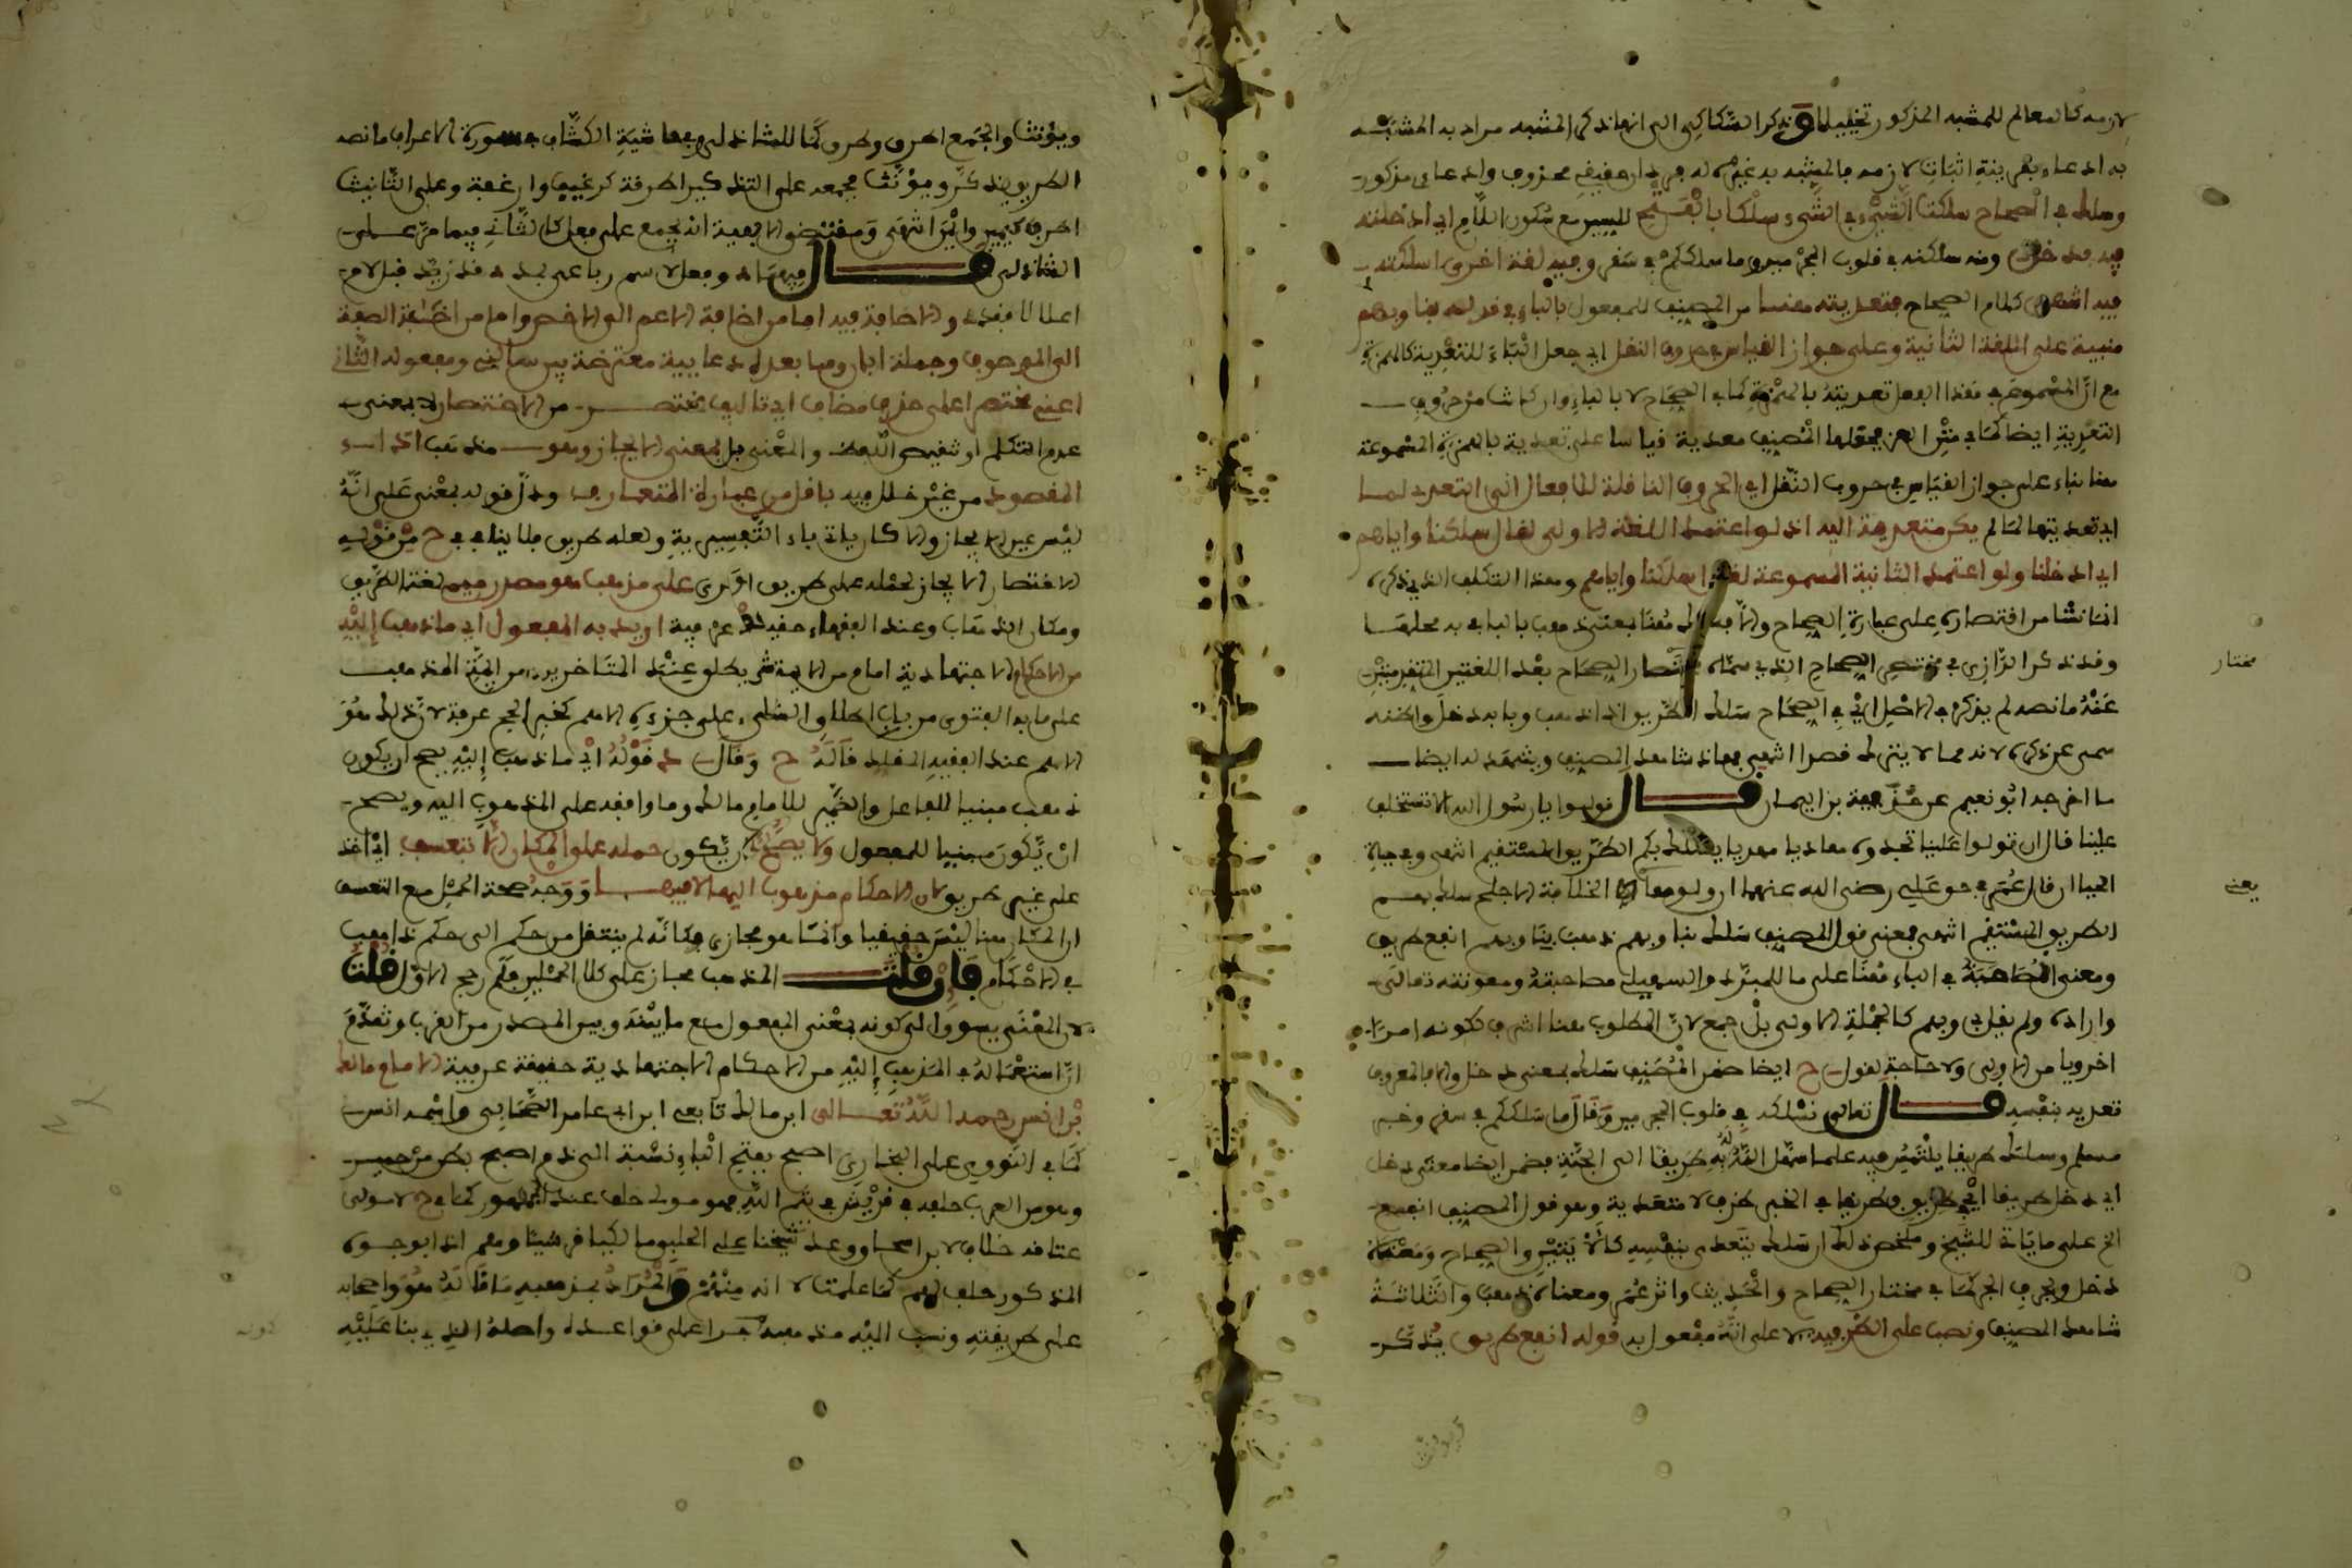 لازمه كالمعالم للمشبه المذكور تخييلا وذكر السكاكي الى انها ذكر المشبه مراد به المشبه
به ادعاء بقرينة اثبات لازمه فالمشبه به غيره له فرد ان حقيقي محذوف وادعاءي مذكور
وسلك في الصحاح سلكت الشيء في الشيء سلكا بالفتح للسين مع سكون اللام اي ادخلته
فيه فدخل ومنه سلكنه في قلوب المجرمين وما سلككم في سقر وفيه لغة اخرى اسلكته
فيه انتهى كلام الصحاح فتعديته هنا من المصنف للمفعول بالباء في قوله بنا وبهم
مبنية على اللغة الثانية وعلى جواز القياس في حروف النقل اي جعل الباء للتعدية كالهمزة
مع ان المسموع في هذا الفعل تعديته بالهمزة كما في الصحاح لا بالباء وان كانت من حروف
التعدية ايضا كما في فجعلها المصنف معدية قياسا على تعدية بالهمزة المسموعة
هنا بناء على جواز القياس في حروف النقل اي الحروف الناقلة للافعال التي لا تتعدى لما
اي تعديتها لما لم يكن متعديا اليه اذ لو اعتمد اللغة الاولى لقال سلكنا واياهم
اي ادخلنا ولو اعتمد الثانية المسموعة لقال اسلكنا واياهم وهذا التكلف الذي ذكره
انما نشا من اقتصاره على عبارة الصحاح والا فسلك هنا بمعنى ذهب بالباء في به محلها
وقد ذكر الرازي في مختصر الصحاح الذي سماه مختار الصحاح بعد اللغتين المتقدمتين
عنه ما نصه لم يذكر في الاصل اي في الصحاح سلك الطريق اذا ذهب وبابه دخل واظنه
سهى عن ذكره لانه مما لا يترك قصرا انتهى فهاذا شاهد المصنف ويشهد له ايضا
ما اخرجه ابو نعيم عن حذيفة بن اليمان قال قولوا يا رسول الله الا تستخلف
علينا قال ان تولوا عليا تجدوه هاديا مهديا يسلك بكم الطريق المستقيم انتهى وفي حياة
الحياان قال عمر في حق علي رضي الله عنهما ان ولوها الخلافة الاجلح سلك بهم
الطريق المستقيم انتهى فمعنى قول المصنف سلك بنا وبهم ذهب بنا وبهم انفع طريق
ومعنى المصاحبة في الباء هنا على ما للمبرد والسهيلي مصاحبته ومعونته تعالى
واراده ولم يقل بي وبهم كالجملة الاولى بل جمع لان المطلوب هنا اشرف لكونه امرا
اخرويا من الاولى ولا حاجة لقول ح ايضا ضمن المصنف سلك بمعنى دخل والا فالمعروف
تعديه بنفسه قال تعالى نسلكه في قلوب المجرمين وقال ما سلككم في سقر وخبر
مسلم وسلك طريقا يلتمس فيه علما سهل الله له به طريقا الى الجنة فضمن ايضا معنى دخل
اي دخل طريقا اي في طريق وطريقا في الخبر ظرف لا متعدية وهو قول المصنف انفع
الخ على ما ياتي للشيخ وملخص ذلك ان سلك يتعدى بنفسه كالايتين والصحاح ومعناه
دخل وبحرف الجر كما في مختار الصحاح والحديث واثر عمر ومعناه ذهب والثلاثة
شاهد المصنف ونصب على الظرفية لا على انه مفعول به قوله انفع طريق يذكر
مختار
يعني
ويؤنث والجمع اطرق وطرق كما للشاذلي وفي حاشية الكشاف في سورة الاعراف ما نصه
الطريق يذكر ويؤنث فجمعه على التذكير اطرقة كرغيف وارغفة وعلى التانيث
اطرق كيمين وايمن انتهى ومقتضى الالفية انه يجمع على فعل كما لشاني فيما مر على
الشاذلي قال فيها وفعل لاسم رباعي بمد قد زيد قبل لام
اعلالا فقد والاضافة فيه اما من اضافة الاعم الى الاخص واما من اضافة الصفة
الى الموصوف وجملة ابان وما بعدها دعائية معترضة بين سالني ومفعوله الثاني
اعني مختصرا على حذف مضاف اي تاليف مختصر من الاختصار لا بمعنى
عدم التكلم او تنقيص اللفظ والمعنى بل بمعنى الايجاز وهو اداء
المقصود من غير خلل فيه باقل من عبارة المتعارف ودل قوله بمعنى على انه
ليس عين الايجاز والا كان ياتي باء التفسيرية ولعله طريق فلا ينافي ح من قوله
الاختصار الايجاز لحمله على طريق اخرى على مذهب هو مصدر ميمي لغة الطريق
ومكان الذهاب وعند الفقهاء حقيقة عرفية اريد به المفعول اي ما ذهب اليه
من الاحكام الاجتهادية امام من الايمة ثم يطلق عند المتاخرين من ايمة المذهب
على ما به الفتوى من باب اطلاق الشيء على جزئه الاهم كخبر الحج عرفة لان ذلك هو
الاهم عند الفقيه المقلد قاله ح وقال د قوله اي ما ذهب اليه يصح ان يكون
ذهب مبنيا للفاعل والضمير للامام مالك وما وافقه على المذهوب اليه ويصح
ان يكون مبنيا للمفعول ولا يصح ان يكون حمله على المكان الا بتعسف اي اخذ
على غير طريق لان الاحكام مذهوب اليها لا فيها ووجه صحة الحمل مع التعسف
ان المكان هنا ليس حقيقيا وانما هو مجازي فكانه لم ينتقل من حكم الى حكم ذاهب
في الاحكام فان قلت المذهب مجاز على كلا الحملين فلم رجح الاول قلت
لان المعنى يسوق الى كونه بمعنى المفعول مع ما بينه وبين المصدر من القرب وتقدم
ان استعماله في المذهب اليه من الاحكام الاجتهادية حقيقة عرفية الامام مالك
بن انس رحمه الله تعالى ابن مالك تابعي ابن ابي عامر الصحابي واسمه انس
كما في النووي على البخاري اصبح بفتح الباء نسبة الى ذي اصبح بطن من حمير
وهو من العرب حلفه في قريش في تيم الله فهو مولى حلف عند الجمهور كما في ح لا مولى
عتاقه خلاف لابن اسحاق وعد شيخنا علي الحلبي وما لكيا قرشيا وهم اذ ابو جده
المذكور حلف لهم كما علمت لا انه منهم والمراد بمذهبه ما قاله هو واصحابه
على طريقته ونسب اليه مذهبا لجرا على قواعده واصله الذي بنا عليه